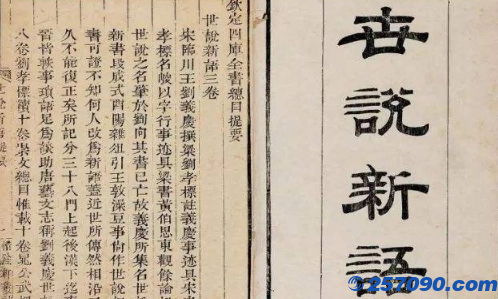 世說新語
欽定四庫全書總目提要
世說新語三卷
宋臨川王劉義慶撰梁劉孝標註義慶事迹具宋
孝標名峻以字行事迹具梁書黃伯思東觀餘論
世說之名肇於劉向其書已亡故義慶所集名世
新書段成式酉陽雜俎引王敦澡豆事尚作世說
書可證不知何人改為新語蓋近世所傳然相沿
久不能復正矣所記分三十八門上起後漢下迄
晉皆軼事瑣語足為談助唐藝文志稱劉義慶世
八卷劉孝標續十卷崇文總目惟載十卷晁公武
257090.com